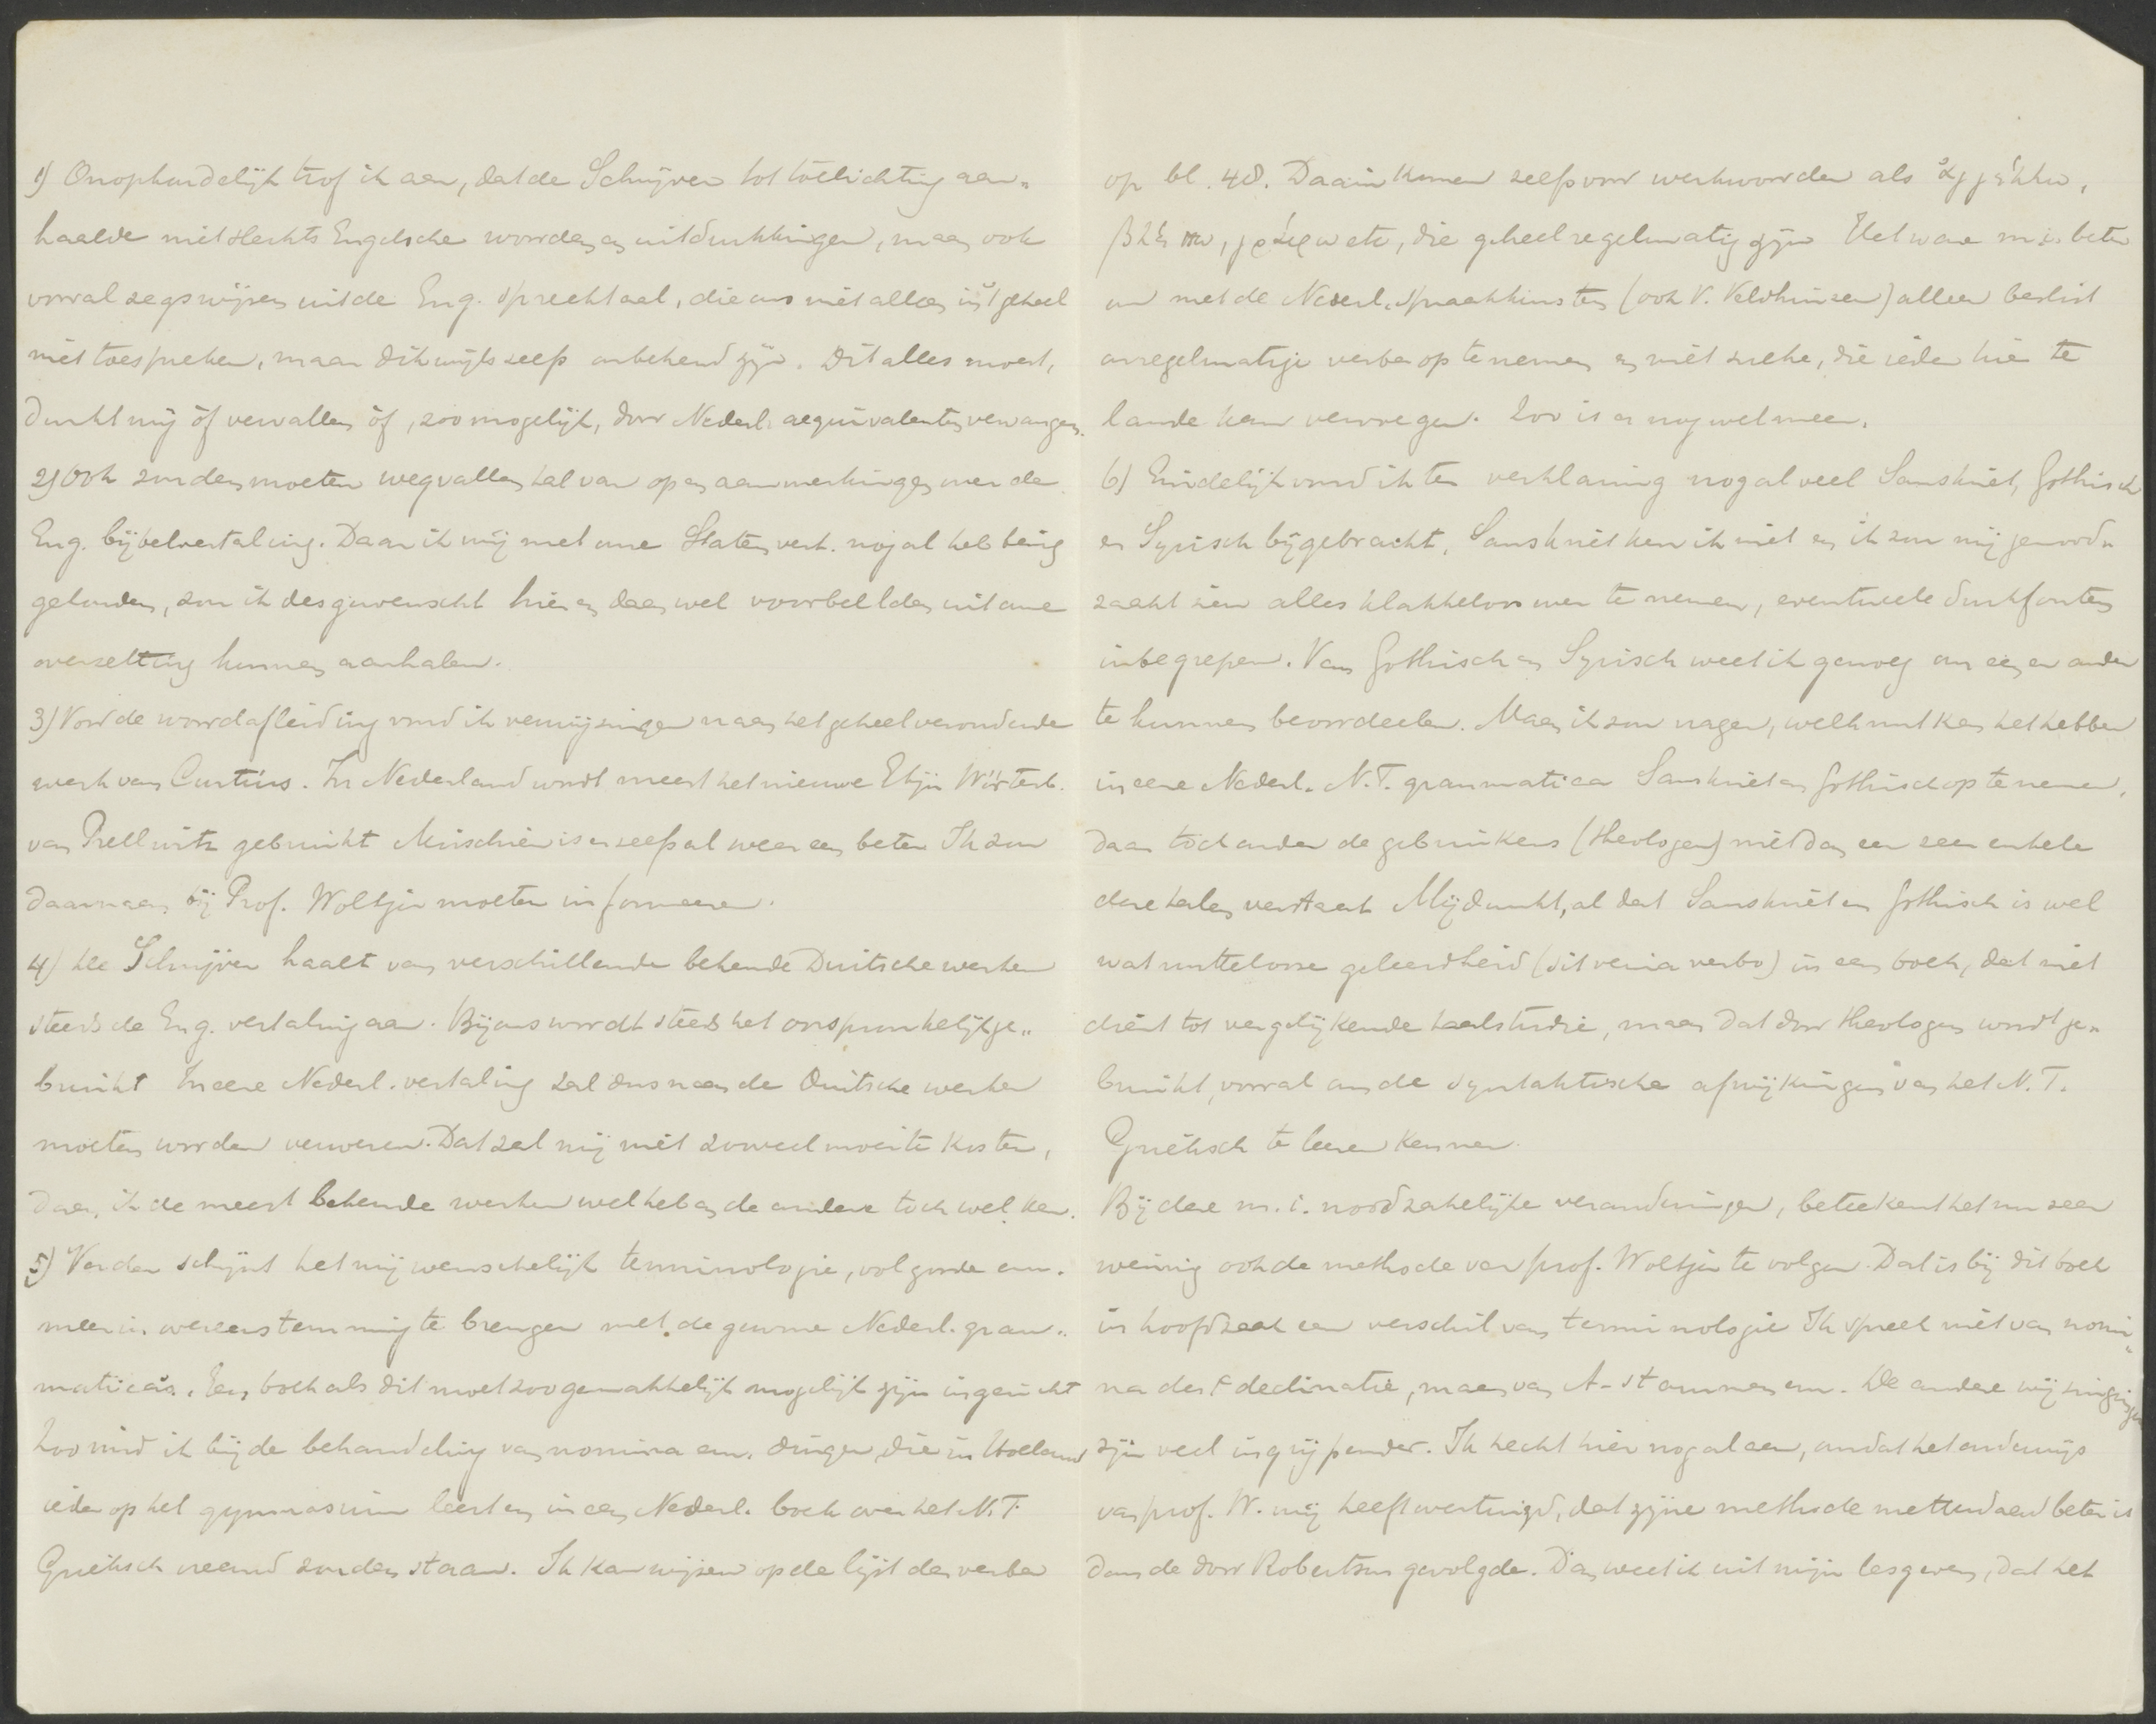 1) Onophoudelijk trof ik aan, dat de Schrijver tot toelichting aan-
haalde niet slechts Engelsche woorden en uitdrukkingen, maar ook
vooral zegswijzen uit de Eng. spreektaal, die ons niet alleen in 't geheel
niet toespreken, maar dikwijls zelfs onbekend zijn. Dit alles moest,
dunkt mij òf vervallen òf, zoo mogelijk, door Nederl. aequivalenten vervangen.
2) Ook zouden moeten wegvallen tal van op en aanmerkingen over de
Eng. bijbelvertaling. Daar ik mij met onze Statenvert. nogal heb bezig
gehouden, zou ik desgewenscht hier en daar wel voorbeelden uit onze
overzetting kunnen aanhalen.
3) Voor de woordafleiding vond ik verwijzingen naar het geheel verouderde
werk van Curtius. In Nederland wordt meest het nieuwe Etijm Wörterb.
van Prellwitz gebruikt Misschien is er zelfs al weer een beter Ik zou
daarnaar bij Prof. Woltjer moeten informeeren.
4) De Schrijver haalt van verschillende bekende Duitsche werken
steeds de Eng. vertaling aan. Bij ons wordt steeds het oorspronkelijk ge-
bruikt In eene Nederl. vertaling zal dus naar de Duitsche werken
moeten worden verwezen. Dat zal mij niet zooveel moeite kosten,
daar ik de meest bekende werken wel heb en de andere toch wel ken.
5) Verder schijnt het mij wenschelijk terminologie, volgorde enz.
meer in overeenstemming te brengen met de gewone Nederl. gram-
matica's. Een boek als dit moet zoo gemakkelijk mogelijk zijn ingericht
Zoo vind ik bij de behandeling van nomina enz. dingen, die in Holland
ieder op het gymnasium leert en in een Nederl. boek over het N.T.
Grieksch vreemd zouden staan. Ik kan wijzen op de lijst der verba
op bl. 48. Daarin komen zelfs voor werkwoorden als ἀγγέλλω,
βλέπω, γράφω etc, die geheel regelmatig zijn Het ware m.i. beter
om met de Nederl. spraakkunsten (ook V. Veldhuizen) alleen beslist
onregelmatige verba op te nemen en niet zulke, die ieder hier te
lande kan vervoegen. Zoo is er nog wel meer.
6) Eindelijk vond ik ter verklaring nogal veel Sanskriet, Gothisch
en Syrisch bijgebracht. Sanskriet ken ik niet en ik zou mij genood-
zaakt zien alles klakkeloos over te nemen, eventueele drukfouten
inbegrepen. Van Gothisch en Syrisch weet ik genoeg om een en ander
te kunnen beoordeelen. Maar ik zou vragen, welk nut kan het hebben
in eene Nederl. N.T. grammatica Sanskriet en Gothisch op te nemen,
daar toch onder de gebruikers (theologen) niet dan een zeer enkele
deze talen verstaat Mij dunkt, al dat Sanskriet en Gothisch is wel
wat nuttelooze geleerdheid (sit venia verbo) in een boek, dat niet
dient tot vergelijkende taalstudie, maar dat door theologen wordt ge-
bruikt, vooral om de syntaktische afwijkingen van het N.T.
Grieksch te leeren kennen.
Bij deze m.i. noodzakelijke veranderingen, beteekent het nu zeer
weinig ook de methode van prof. Woltjer te volgen. Dat is bij dit boek
in hoofdzaak een verschil van terminologie Ik spreek niet van nomi-
na der 1e declinatie, maar van A-stammen enz. De andere wijzigingen
zijn veel ingrijpender. Ik hecht hier nogal aan, omdat het onderwijs
van prof. W. mij heeft overtuigd, dat zijne methode metterdaad beter is
dan de door Robertson gevolgde. Dan weet ik uit mijn lesgeven, dat het